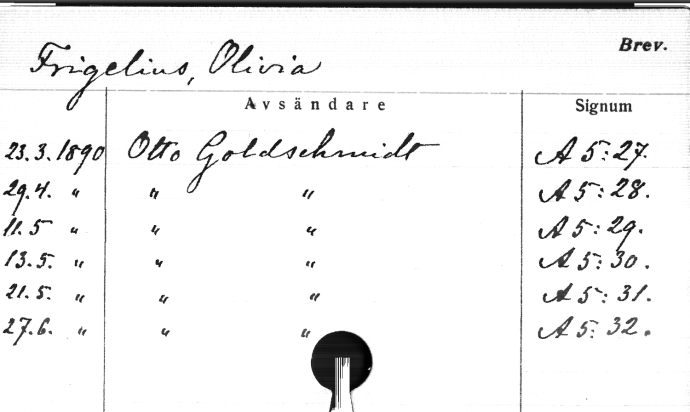 Brev.
Frigelius, Olivia
Avsändare Signum
23.3.1890 Otto Goldschmidt A 5:27.
29.4. " " " A 5:28.
11.5 " " " A 5:29.
13.5. " " " A 5:30.
21.5. " " " A 5:31.
27.6. " " " A 5:32.